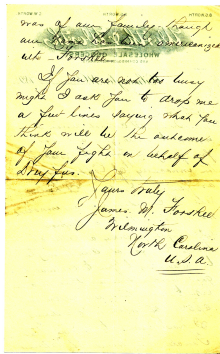 was of our families though
our name has been americanized
into Forshee.
If you are not too busy
might I ask you to drop me
a few lines saying what you
think will be the outcome
of your fight in behalf of
Dreyfus.
Yours Truly
James M. Forshee
Wilmington
North Carolina
U.S.A.